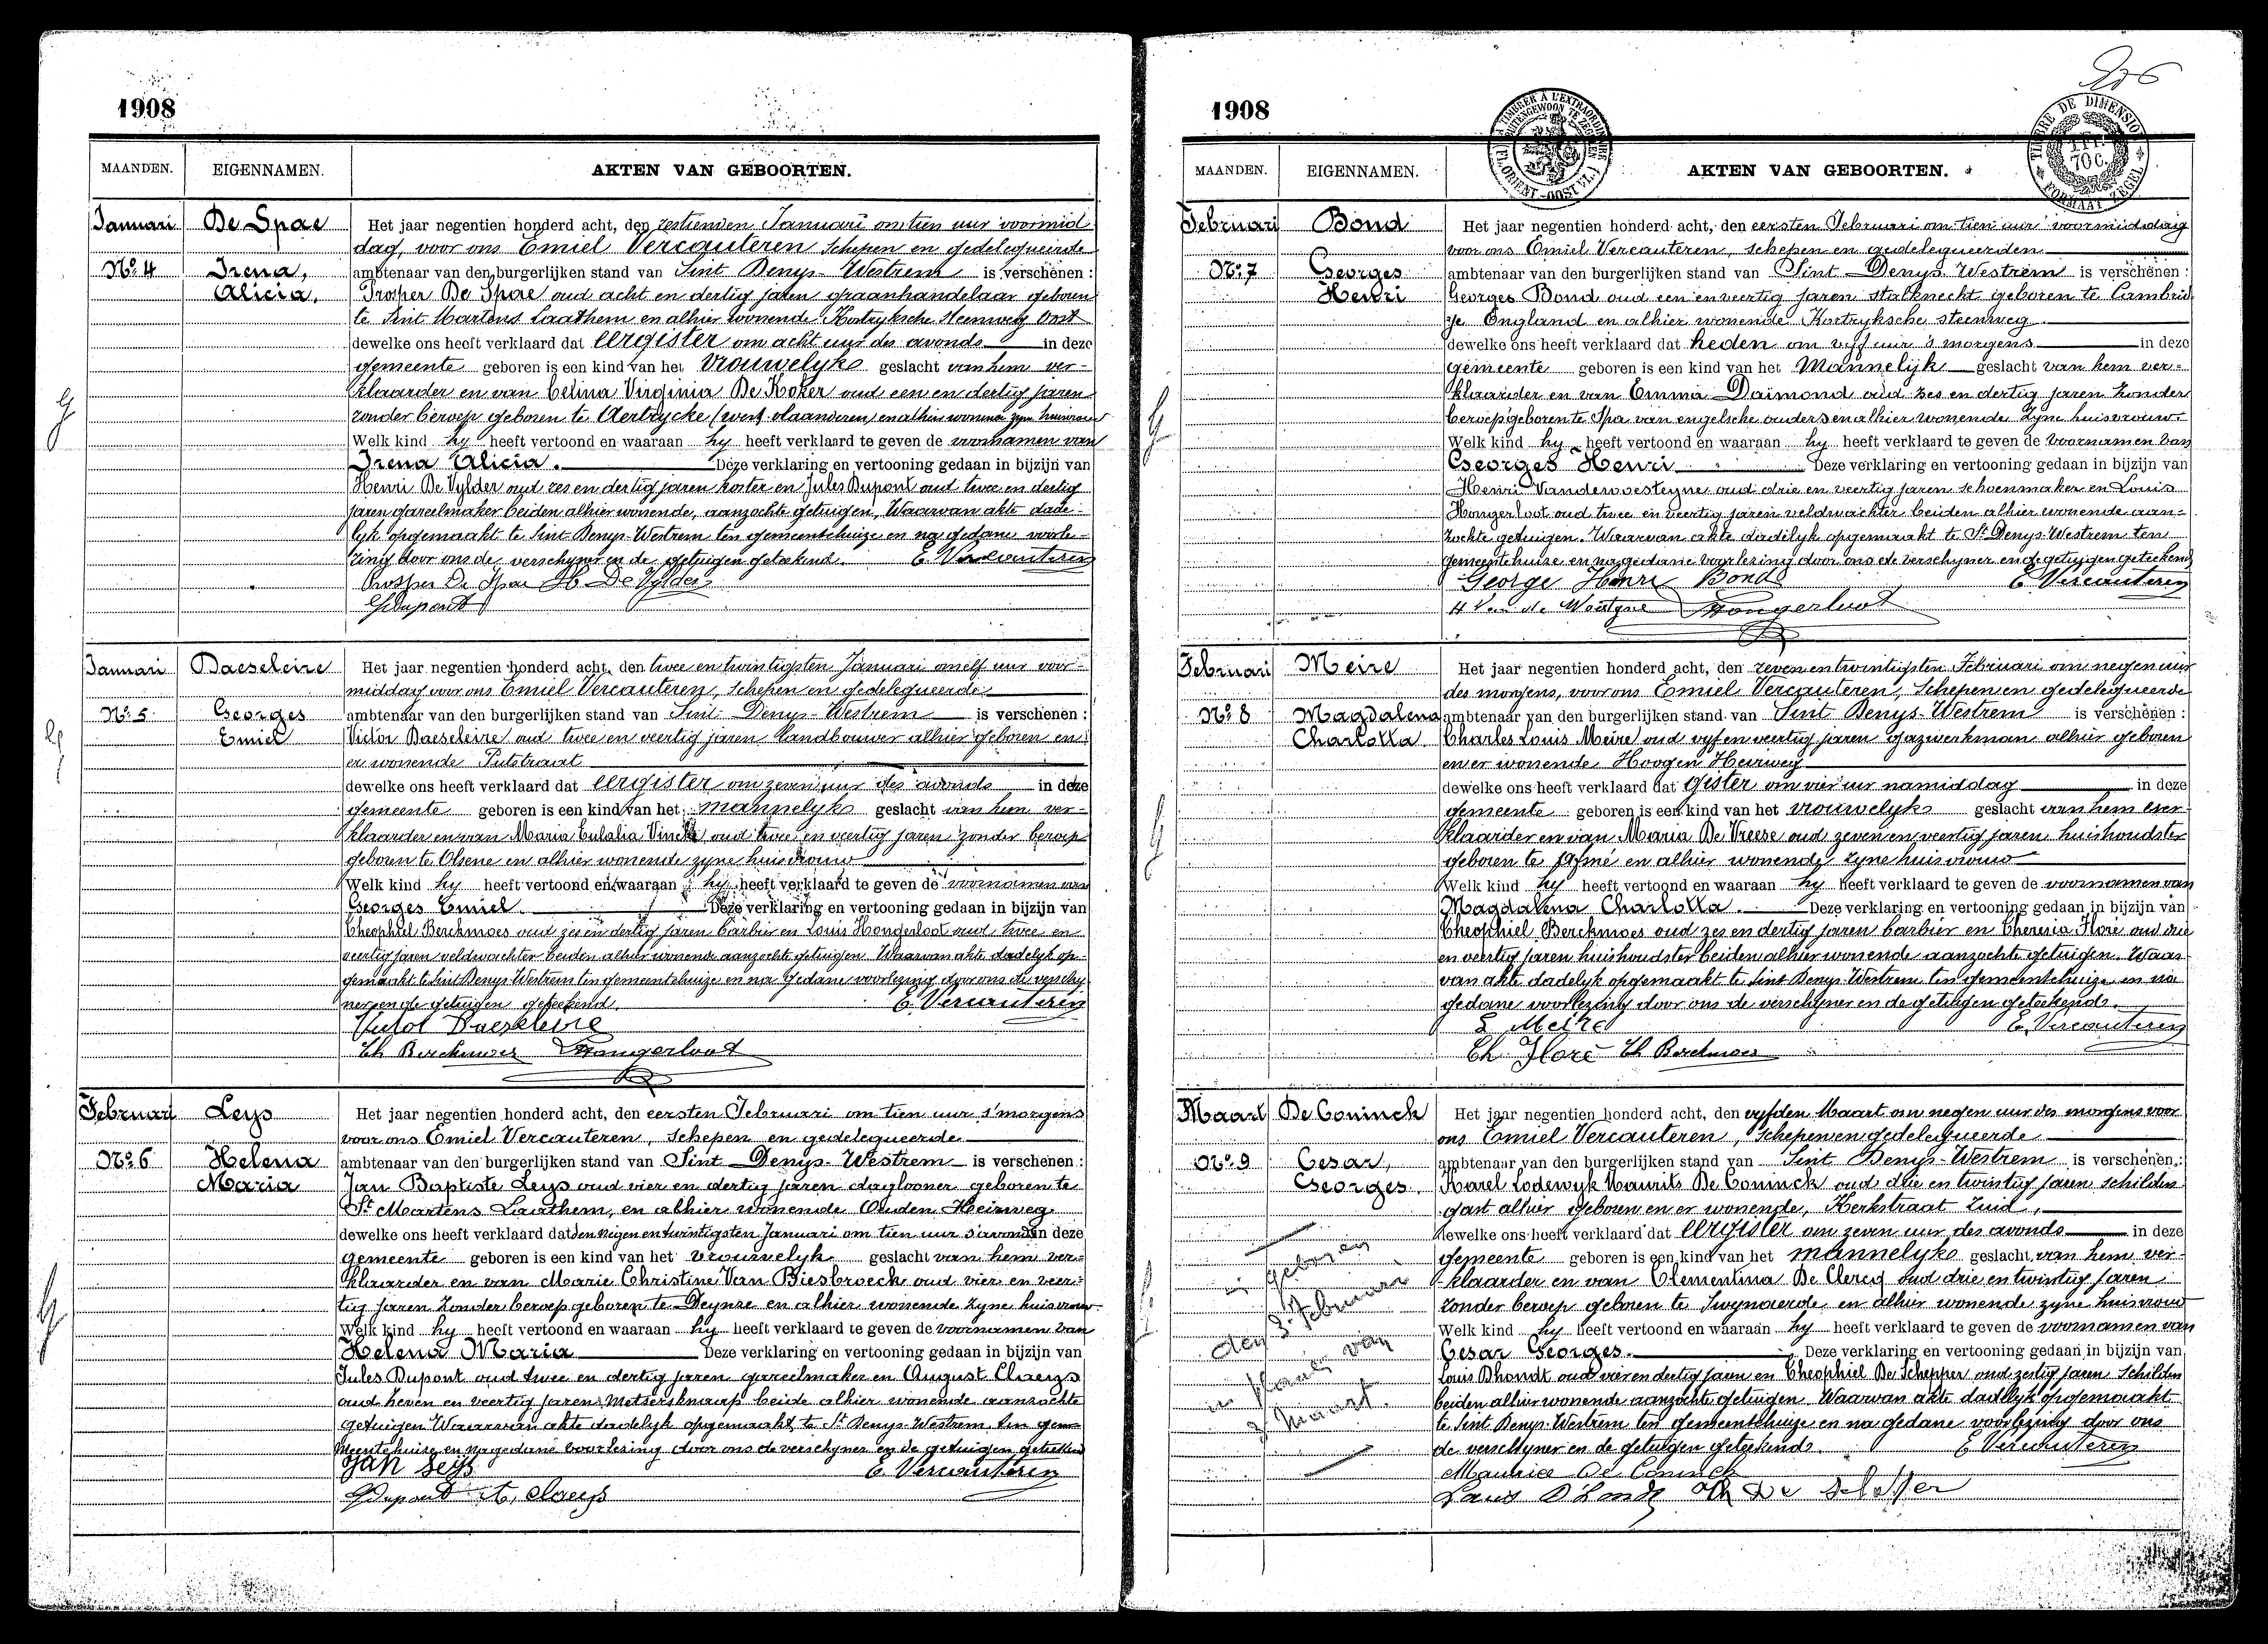 1908
MAANDEN. EIGENNAMEN. AKTEN VAN GEBOORTEN.
Januari De Spae
Nº 4 Irena,
Alicia.
Het jaar negentien honderd acht, den zestienden Januari om tien uur voormid-
dag, voor ons Emiel Vercauteren Schepen en gedelegueerde
ambtenaar van den burgerlijken stand van Sint Denys-Westrem is verschenen:
Prosper De Spae oud acht en dertig jaren graanhandelaar geboren
te Sint Martens Laathem en alhier wonende Kortryksche Steenweg Oost
dewelke ons heeft verklaard dat eergister om acht uur des avonds in deze
gemeente geboren is een kind van het vrouwelyke geslacht van hem ver-
klaarder en van Celina Virginia De Koker oud een en dertig jaren
zonder beroep geboren te Aertrycke (west vlaanderen) en alhier wonende zyne huisvrouw
Welk kind hy heeft vertoond en waaraan hy heeft verklaard te geven de voornamen van
Irena Alicia. Deze verklaring en vertooning gedaan in bijzijn van
Henri De Vylder oud zes en dertig jaren koster en Jules Dupont oud twee en dertig
jaren gareelmaker beiden alhier wonende, aanzochte getuigen, Waarvan akte dade-
lyk opgemaakt te Sint Denys-Westrem ten gemeentehuize en na gedane voorle-
zing door ons de verschyner en de getuigen geteekend. E. Vercauteren
Prosper De Spae H. De Vylder
J Dupont
Januari Baeseleire
Nº 5 Georges
Emiel
Het jaar negentien honderd acht, den twee en twintigsten Januari om elf uur voor-
middag voor ons Emiel Vercauteren, Schepen en gedelegueerde
ambtenaar van den burgerlijken stand van Sint Denys-Westrem is verschenen:
Victor Baeseleire oud twee en veertig jaren landbouwer alhier geboren en
er wonende Putstraat
dewelke ons heeft verklaard dat eergister om zeven uur des avonds in deze
gemeente geboren is een kind van het mannelyke geslacht van hem ver-
klaarder en van Maria Eulalia Vincke oud twee en veertig jaren zonder beroep
geboren te Olsene en alhier wonende zyne huisvrouw
Welk kind hy heeft vertoond en waaraan hy heeft verklaard te geven de voornamen van
Georges Emiel. Deze verklaring en vertooning gedaan in bijzijn van
Theophiel Berckmoes oud zes en dertig jaren barbier en Louis Hongerloot oud twee en
veertig jaren veldwachter beiden alhier wonende aanzochte getuigen. Waarvan akte dadelyk op-
gemaakt te Sint Denys Westrem ten gemeentehuize en na Gedane voorlezing door ons de verschy-
ner en de getuigen geteekend. E. Vercauteren
Victor Baeseleire
Th Berckmoes L Hongerloot
Februari Leys
Nº 6 Helena
Maria
Het jaar negentien honderd acht, den eersten Februari om tien uur s'morgens
voor ons Emiel Vercauteren, Schepen en gedelegueerde
ambtenaar van den burgerlijken stand van Sint Denys-Westrem is verschenen:
Jan Baptiste Leys oud vier en dertig jaren daglooner geboren te
St Martens Laathem, en alhier wonende Ouden Heirweg
dewelke ons heeft verklaard dat den negen en twintigsten Januari om tien uur s'avonds in deze
gemeente geboren is een kind van het vrouwelyk geslacht van hem ver-
klaarder en van Marie Christine Van Biesbroeck oud vier en veer-
tig jaren Zonder beroep geboren te Deynze en alhier wonende zyne huisvrouw
Welk kind hy heeft vertoond en waaraan hy heeft verklaard te geven de voornamen van
Helena Maria Deze verklaring en vertooning gedaan in bijzijn van
Jules Dupont oud twee en dertig jaren gareelmaker en August Claeys
oud zeven en veertig jaren Metsersknaap beide alhier wonende aanzochte
getuigen Waarvan akte dadelyk opgemaakt te St Denys-Westrem ten gem-
meentehuize en na gedane voorlezing door ons de verschyner en de getuigen geteekend
Jan Leys E. Vercauteren
J Dupont A. Claeys
1908
A TIMBRER A L'EXTRAORDINAIRE
BUITENGEWOON TE ZEGELEN
FL. ORIENT - OOST VL.
TIMBRE DE DIMENSION
1 FR. 70 C.
FORMAAT ZEGEL
MAANDEN. EIGENNAMEN. AKTEN VAN GEBOORTEN.
Februari Bond
Nº 7 Georges
Henri
Het jaar negentien honderd acht, den eersten Februari om tien uur voormiddag
voor ons Emiel Vercauteren, schepen en gedelegueerden
ambtenaar van den burgerlijken stand van Sint Denys-Westrem is verschenen:
Georges Bond oud een en veertig jaren stalknecht geboren te Cambrid-
ge England en alhier wonende Kortryksche steenweg
dewelke ons heeft verklaard dat heden om vyf uur 's morgens in deze
gemeente geboren is een kind van het Mannelyk geslacht van hem ver-
klaarder en van Emma Daimond oud zes en dertig jaren Zonder
beroep geboren te Spa van engelsche ouders en alhier wonende Zyne huisvrouw
Welk kind hy heeft vertoond en waaraan hy heeft verklaard te geven de Voornamen van
Georges Henri Deze verklaring en vertooning gedaan in bijzijn van
Henri Vandewoestyne oud drie en veertig jaren schoenmaker en Louis
Hongerloot oud twee en veertig jaren veldwachter beiden alhier wonende aan-
zochte getuigen. Waarvan akte dadelyk opgemaakt te St Denys-Westrem ten
gemeentehuize en na gedane voorlezing door ons de verschyner en de getuigen geteekend
George Henri Bond E. Vercauteren
H Van de Woestyne L Hongerloot
Februari Meire
Nº 8 Magdalena
Charlotta
Het jaar negentien honderd acht, den zeven en twintigsten Februari om negen uur
des morgens, voor ons Emiel Vercauteren, Schepen en gedelegueerde
ambtenaar van den burgerlijken stand van Sint Denys-Westrem is verschenen:
Charles Louis Meire oud vyf en veertig jaren gazwerkman alhier geboren
en er wonende Hoogen Heirweg
dewelke ons heeft verklaard dat gister om vier uur namiddag in deze
gemeente geboren is een kind van het vrouwelyke geslacht van hem ver-
klaarder en van Maria De Vreese oud zeven en veertig jaren huishoudster
geboren te Afsné en alhier wonende zyne huisvrouw
Welk kind hy heeft vertoond en waaraan hy heeft verklaard te geven de voornamen van
Magdalena Charlotta. Deze verklaring en vertooning gedaan in bijzijn van
Theophiel Berckmoes oud zes en dertig jaren barbier en Theresia Floré oud drie
en veertig jaren huishoudster beiden alhier wonende aanzochte getuigen. Waar-
van akte dadelyk opgemaakt te Sint Denys-Westrem ten gemeentehuize en na
gedane voorlezing door ons de verschyner en de getuigen geteekend.
Meire E. Vercauteren
Th. Floré Th Berckmoes
Maart De Coninck
Nº 9 Cesar,
Georges.
geboren
den 3 Februari
in plaats van
3 Maart.
Het jaar negentien honderd acht, den vyfden Maart om negen uur des morgens voor
ons Emiel Vercauteren, Schepen en gedelegueerde
ambtenaar van den burgerlijken stand van Sint Denys-Westrem is verschenen:
Karel Lodewyk Maurits De Coninck oud drie en twintig jaren schilders-
gast alhier geboren en er wonende, Kerkstraat Zuid,
dewelke ons heeft verklaard dat eergister om zeven uur des avonds in deze
gemeente geboren is een kind van het mannelyke geslacht van hem ver-
klaarder en van Clementina De Clercq oud drie en twintig jaren
zonder beroep geboren te Swynaerde en alhier wonende zyne huisvrouw
Welk kind hy heeft vertoond en waaraan hy heeft verklaard te geven de voornamen van
Cesar Georges. Deze verklaring en vertooning gedaan in bijzijn van
Louis Dhondt oud vier en dertig jaren en Theophiel De Schepper oud zestig jaren Schilders
beiden alhier wonende aanzochte getuigen. Waarvan akte dadelyk opgemaakt
te Sint Denys-Westrem ten gemeentehuize en na gedane voorlezing door ons
de verschyner en de getuigen geteekend. E. Vercauteren
Maurice De Coninck
Louis D'hondt Th De Schepper